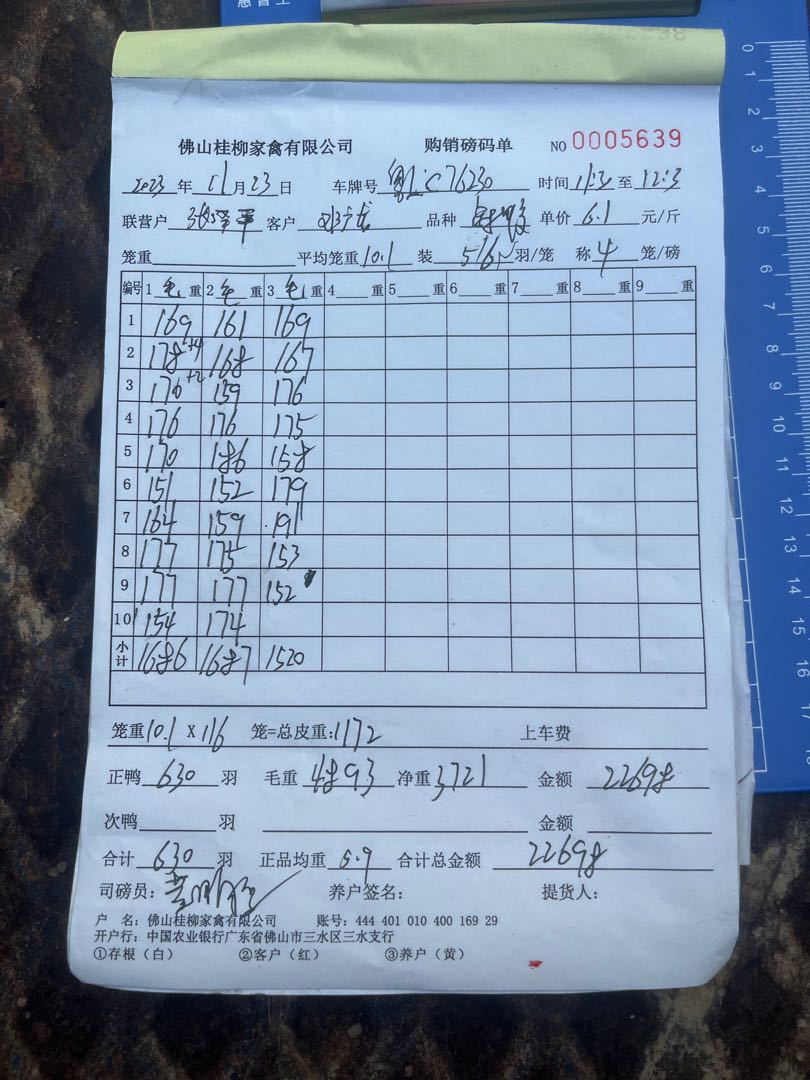 佛山桂柳家禽有限公司 购销磅码单 NO 0005639
2023 年 11 月 23 日 车牌号 C76230 时间 11:3 至 12:3
联营户 客户 品种 单价 6.1 元/斤
笼重 平均笼重 10.1 装 5/6 羽/笼 称 4 笼/磅
编号 1 毛 重 2 毛 重 3 毛 重 4 重 5 重 6 重 7 重 8 重 9 重
1 169 161 169
2 178+4 168 167
3 170+2 159 176
4 176 176 175
5 170 186 158
6 151 152 179
7 164 159 191
8 177 175 153
9 177 177 152
10 154 174
小计 1686 1687 1520
笼重 10.1 X 116 笼=总皮重: 1172 上车费
正鸭 630 羽 毛重 4893 净重 3721 金额 22698
次鸭 羽 金额
合计 630 羽 正品均重 5.9 合计总金额 22698
司磅员: 养户签名: 提货人:
户 名: 佛山桂柳家禽有限公司 账号: 444 401 010 400 169 29
开户行: 中国农业银行广东省佛山市三水区三水支行
①存根（白） ②客户（红） ③养户（黄）
0
1
2
3
4
5
6
7
8
9
10
11
12
13
14
15
16
17